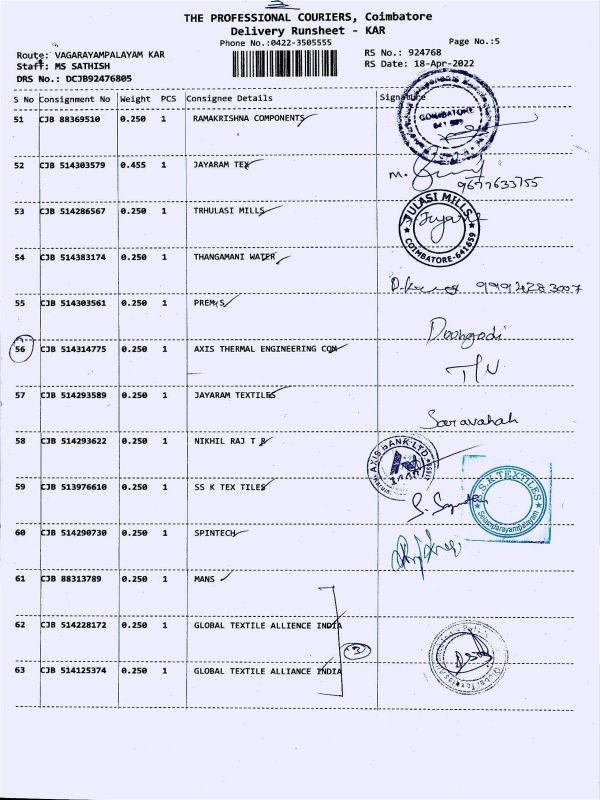 THE PROFESSIONAL COURIERS, Coimbatore
Delivery Runsheet - KAR
Phone No.:0422-3505555
Page No.:5
Route: VAGARAYAMPALAYAM KAR
RS No.: 924768
Staff: MS SATHISH
RS Date: 18-Apr-2022
DRS No.: DCJB92476805
S No Consignment No Weight PCS Consignee Details Signature
51 CJB 88369510 0.250 1 RAMAKRISHNA COMPONENTS
COIMBATORE
52 CJB 514303579 0.455 1 JAYARAM TEX
M.
9677633755
53 CJB 514286567 0.250 1 TRHULASI MILLS
TULASI MILLS
COIMBATORE-641659
54 CJB 514383174 0.250 1 THANGAMANI WATER
55 CJB 514303561 0.250 1 PREM(S
56 CJB 514314775 0.250 1 AXIS THERMAL ENGINEERING COM
57 CJB 514293589 0.250 1 JAYARAM TEXTILES
58 CJB 514293622 0.250 1 NIKHIL RAJ T R
AXIS BANK LTD
59 CJB 513976610 0.250 1 SS K TEX TILES
S.S.K. TEXTILES
Selamparayampalayam
60 CJB 514290730 0.250 1 SPINTECH
61 CJB 88313789 0.250 1 MANS
62 CJB 514228172 0.250 1 GLOBAL TEXTILE ALLIENCE INDIA
63 CJB 514125374 0.250 1 GLOBAL TEXTILE ALLIANCE INDIA